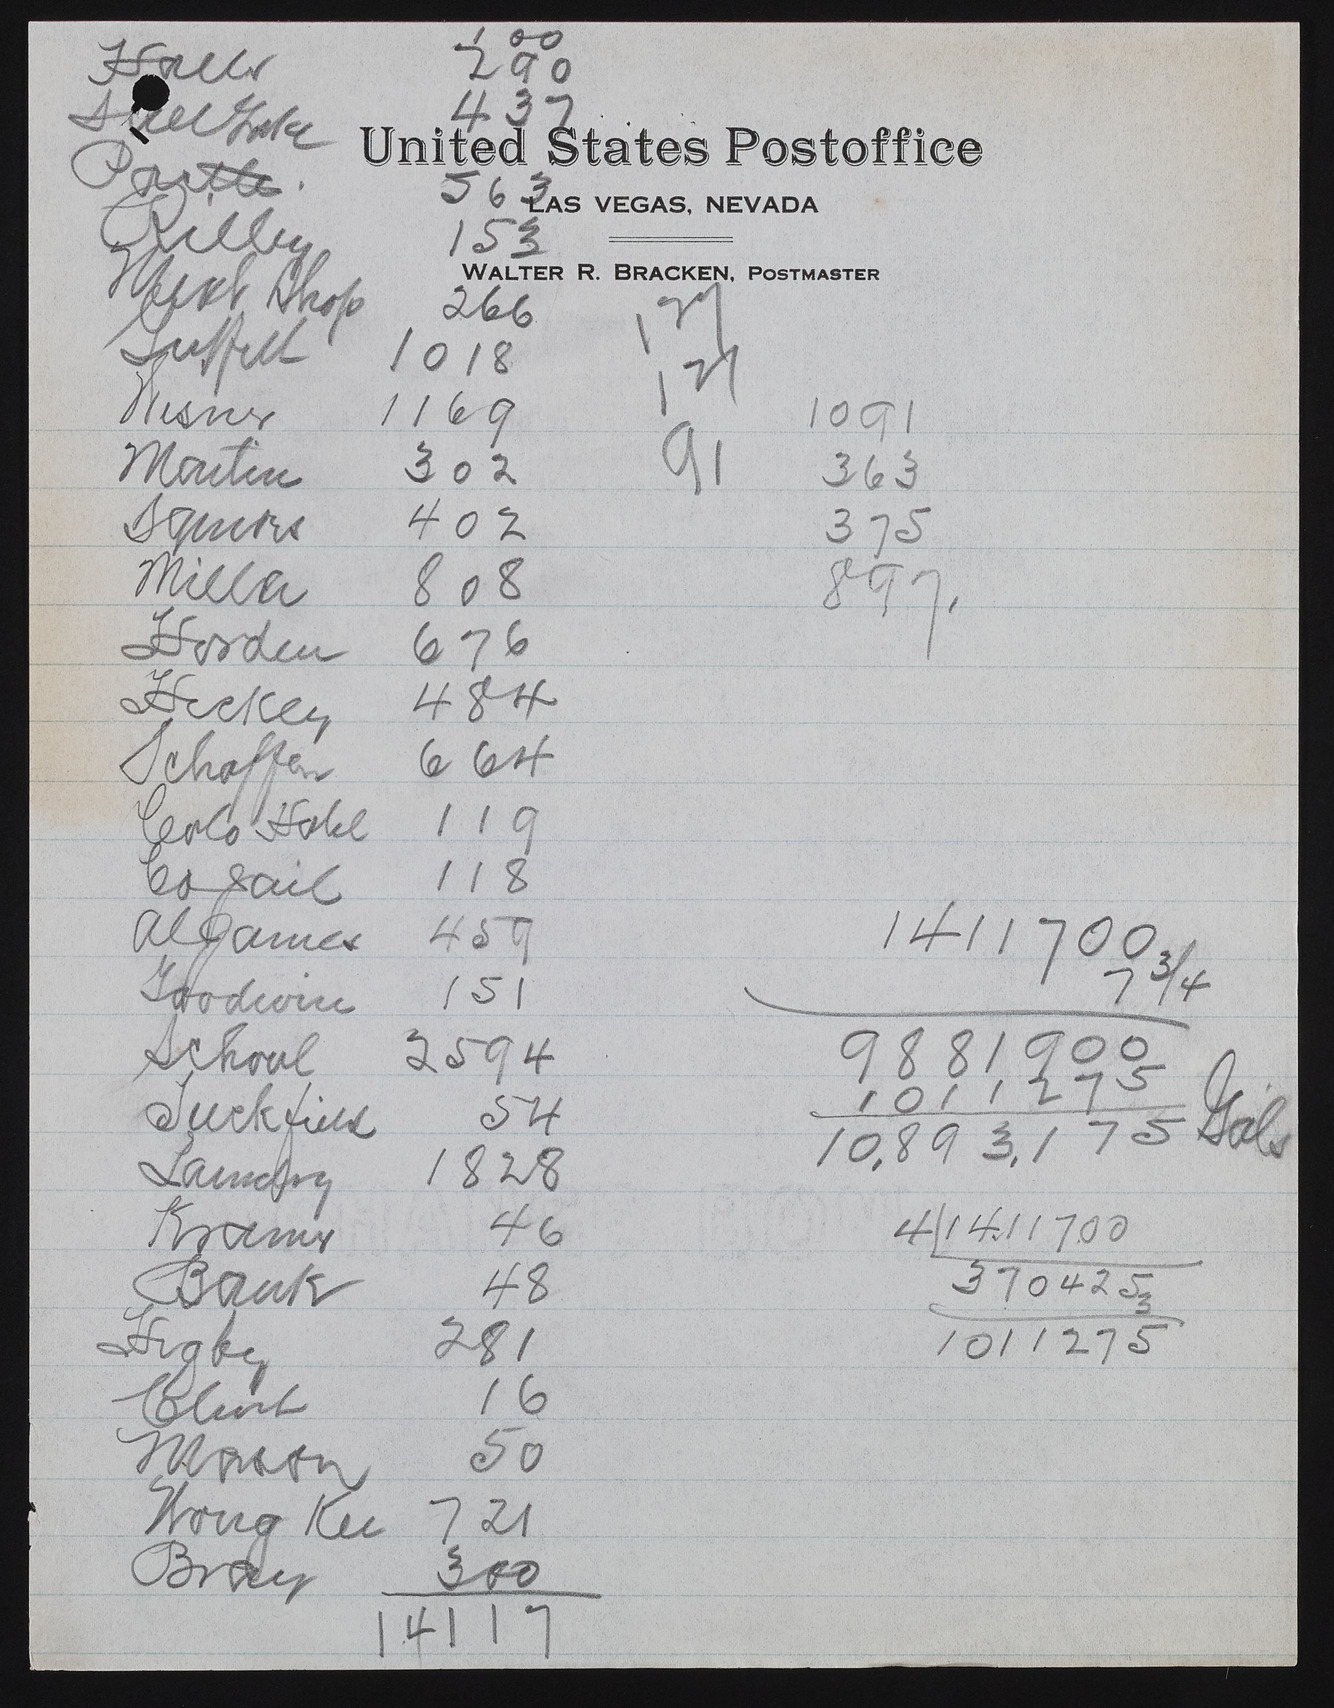 1 00
Halls 290
437
United States Postoffice
563
LAS VEGAS, NEVADA
153
WALTER R. BRACKEN, POSTMASTER
Meat Shop 266
127
1018
127
Wisner 1169
1091
Martin 302
91
363
Squires 402
375
Miller 808
897.
Horden 676
Hickey 484
Schaffer 664
Colo Hotel 119
Co Jail 118
Al James 459
1411700
Goodwin 151
7 3/4
School 2594
9881900
1011275
Tuckfield 54
10,893,175 Gals
Laundry 1828
Kramer 46
4/1411700
Bank 48
3704253
Higby 281
1011275
16
50
Wong Kee 721
Bray 300
14117